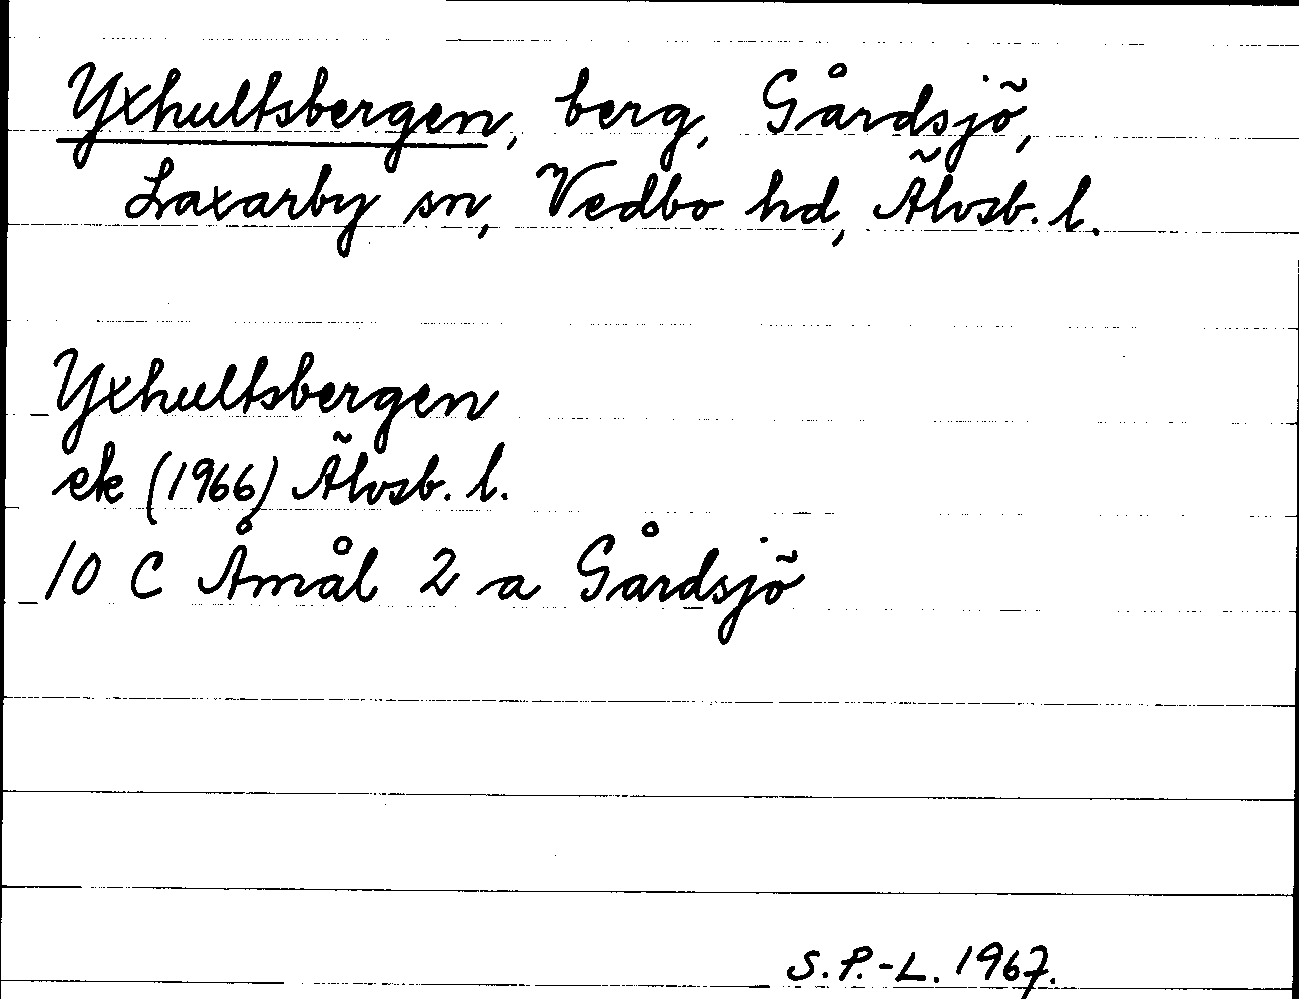 Yxhultsbergen, berg, Gårdsjö,
Laxarby sn, Vedbo hd, Älvsb. l.
Yxhultsbergen
ek (1966) Älvsb. l.
10 C Åmål 2 a Gårdsjö
S. P.-L. 1967.